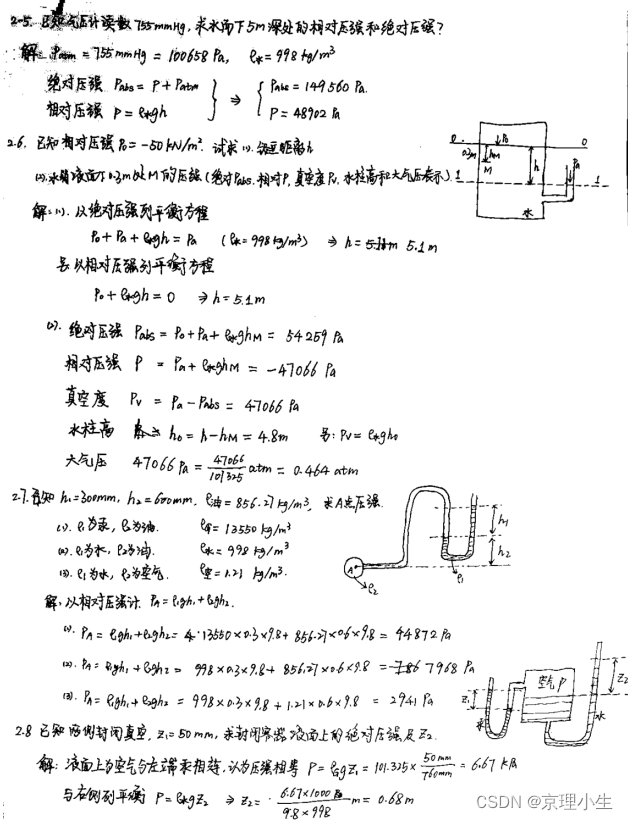 2-5. 已知气压计读数 755mmHg, 求水面下5m深处的相对压强和绝对压强?
解: Patm = 755 mmHg = 100658 Pa, ρ水 = 998 kg/m³
绝对压强 Pabs = P + Patm
相对压强 P = ρ水gh
⇒
Pabs = 149560 Pa.
P = 48902 Pa
2.6. 已知相对压强 P₀ = -50 kN/m². 试求 (1). 铅垂距离h
(2). 求解液面下0.3m处M的压强 (绝对Pabs, 相对P, 真空度Pv, 水柱高和大气压表示).
0 P₀ 0
0.3m hM
M h Pa
1 1
水
解: (1). 以绝对压强列平衡方程
P₀ + Pa + ρ水gh = Pa (ρ水 = 998 kg/m³) ⇒ h = 5.1 m
另: 以相对压强列平衡方程
P₀ + ρ水gh = 0 ⇒ h = 5.1 m
(2). 绝对压强 Pabs = P₀ + Pa + ρ水ghM = 54259 Pa
相对压强 P = Pa + ρ水ghM = -47066 Pa
真空度 Pv = Pa - Pabs = 47066 Pa
水柱高 h₀ = h - hM = 4.8m 另: Pv = ρ水gh₀
大气压 47066 Pa = 47066/101325 atm = 0.464 atm
2.7. 已知 h₁ = 300mm, h₂ = 600mm, ρ油 = 856.27 kg/m³, 求A点压强.
(1). ρ₁为汞, ρ₂为油. ρ汞 = 13550 kg/m³
(2). ρ₁为水, ρ₂为油. ρ水 = 998 kg/m³
(3). ρ₁为水, ρ₂为空气. ρ空 = 1.21 kg/m³.
h₁
h₂
A
ρ₂ ρ₁
解: 以相对压强计 PA = ρ₁gh₁ + ρ₂gh₂.
(1). PA = ρ₁gh₁ + ρ₂gh₂ = 13550×0.3×9.8 + 856.27×0.6×9.8 = 44872 Pa
(2). PA = ρ₁gh₁ + ρ₂gh₂ = 998×0.3×9.8 + 856.27×0.6×9.8 = 7968 Pa
(3). PA = ρ₁gh₁ + ρ₂gh₂ = 998×0.3×9.8 + 1.21×0.6×9.8 = 2941 Pa
空气 P
Z₁ Z₂
汞 水
2.8 已知两侧封闭真空, Z₁ = 50 mm, 求封闭容器液面上的绝对压强及 Z₂.
解: 液面上方空气与左端汞相等, 认为压强相等 P = ρ汞gZ₁ = 101.325× 50mm/760mm = 6.67 kPa
与右侧列平衡 P = ρ水gZ₂ ⇒ Z₂ = 6.67×1000/9.8×998 m = 0.68m
CSDN @京理小生